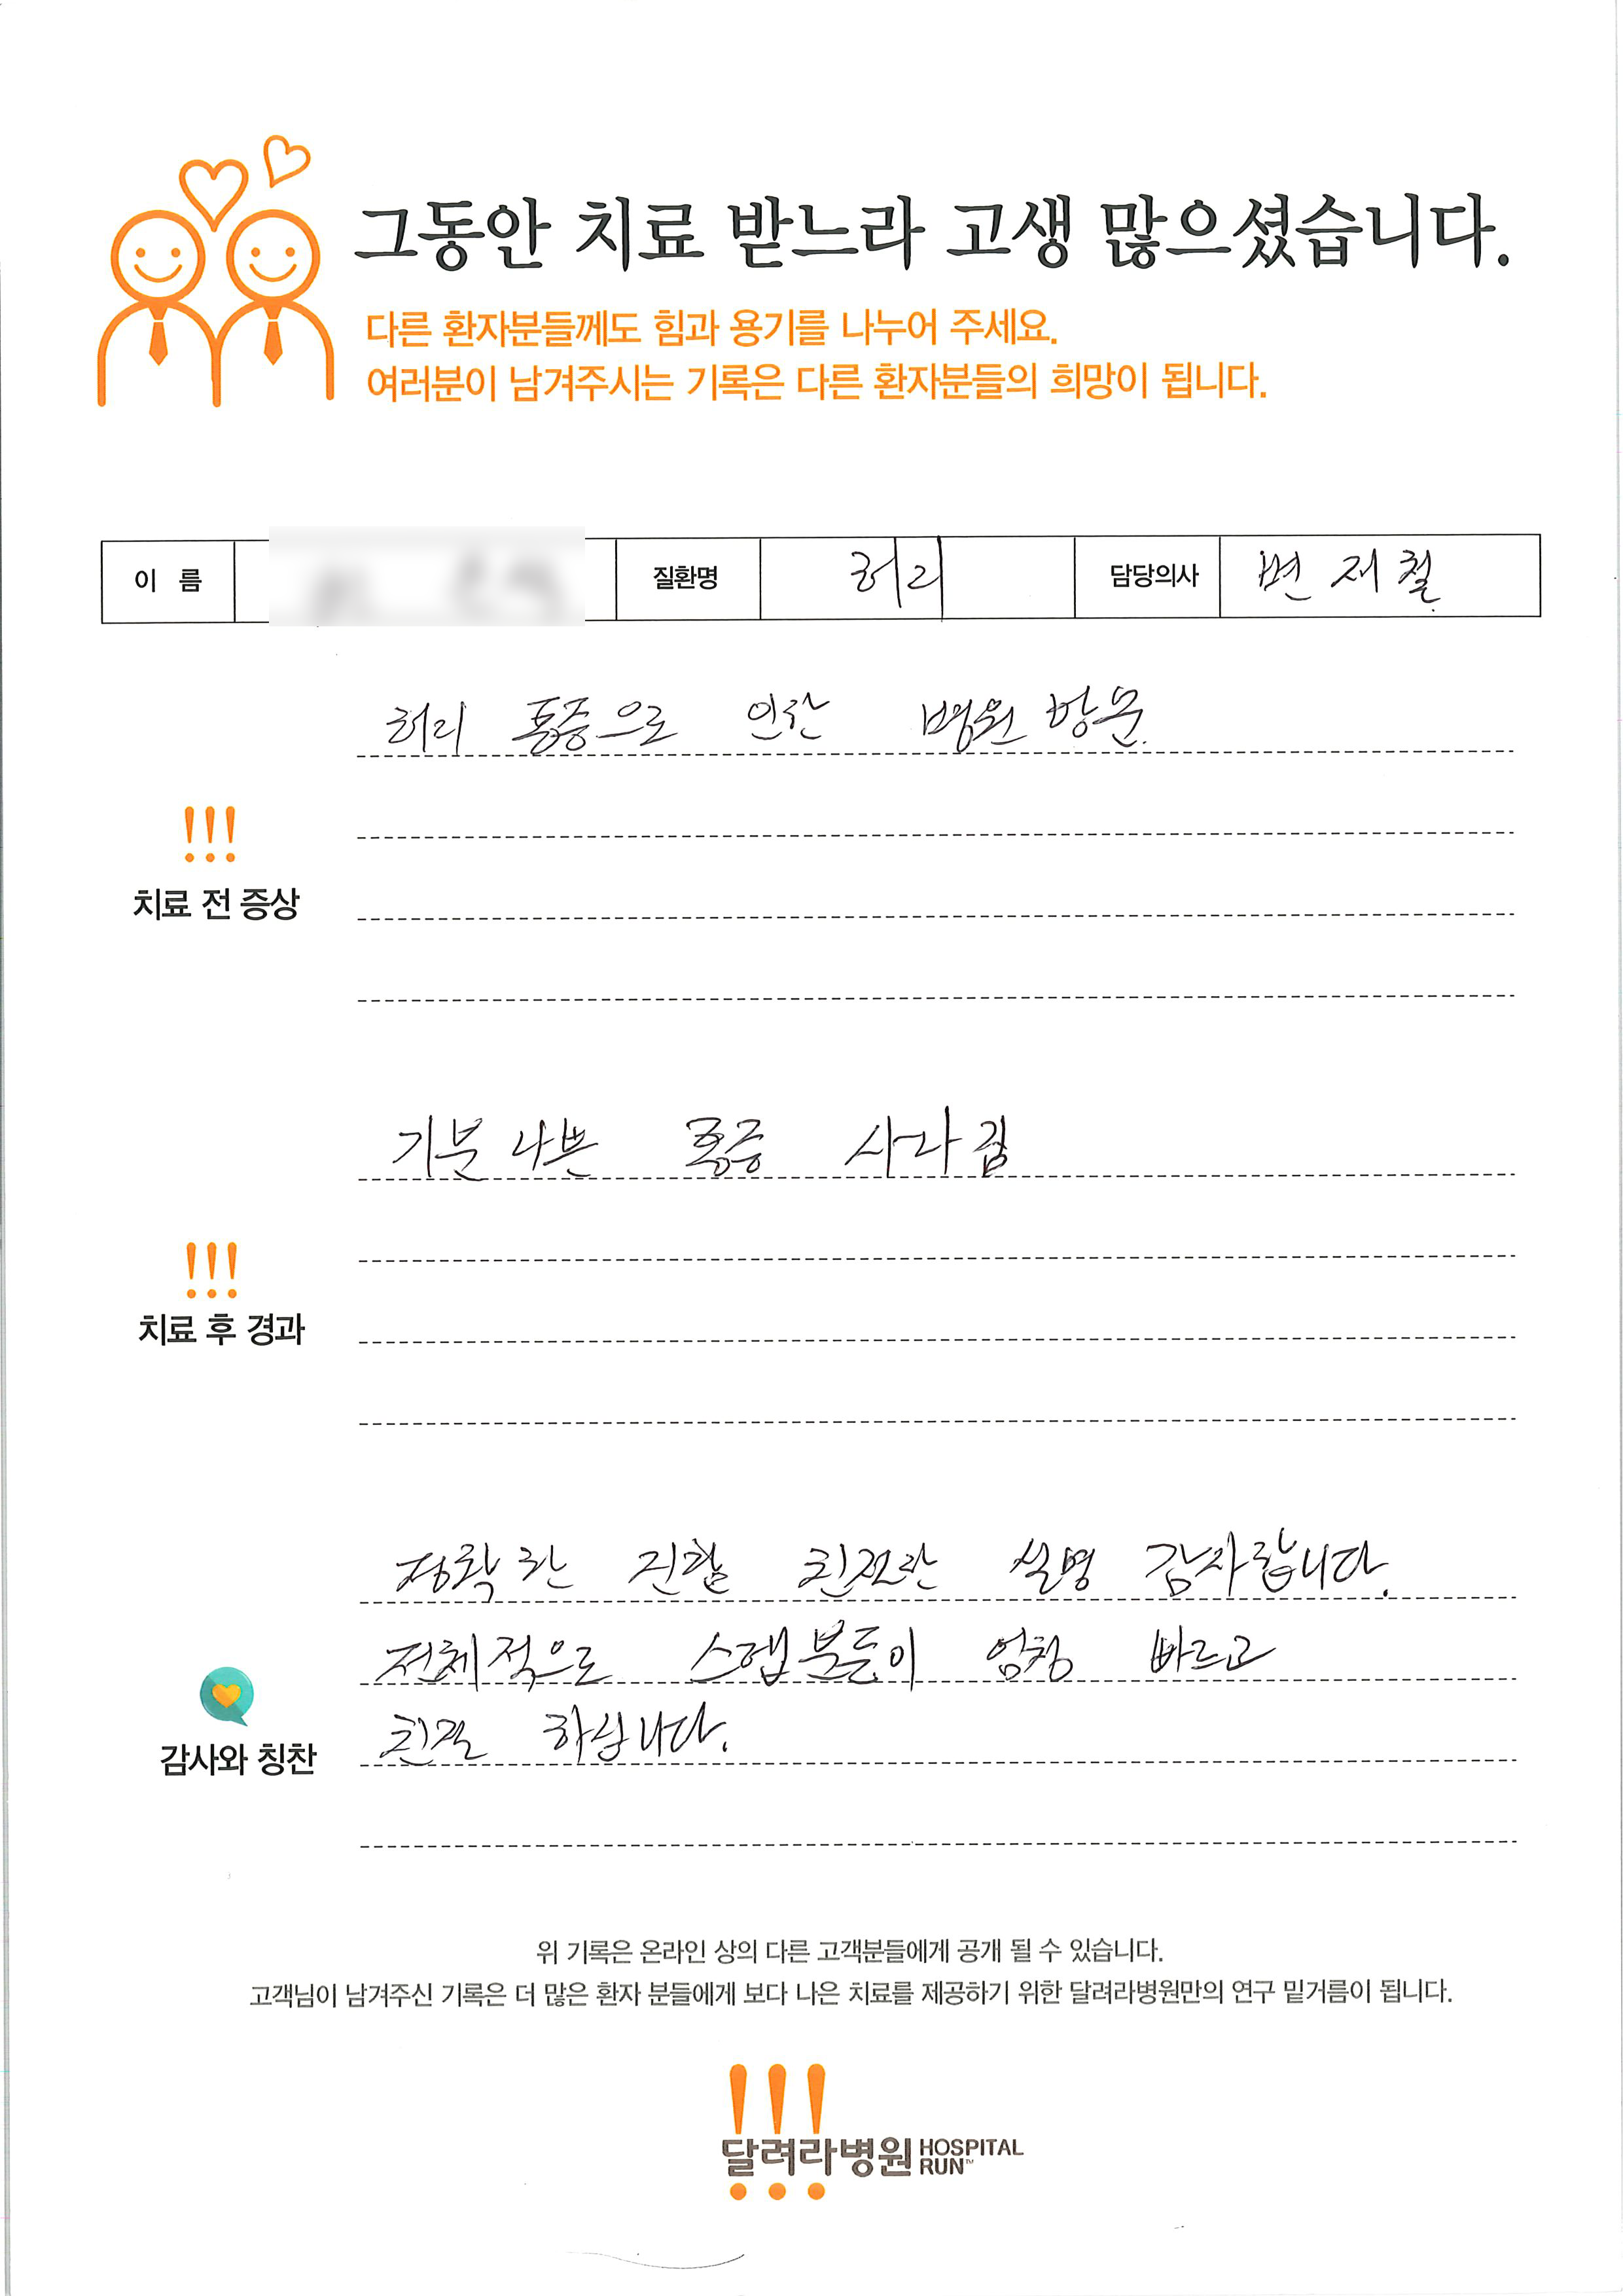 그동안 치료 받느라 고생 많으셨습니다.
다른 환자분들께도 힘과 용기를 나누어 주세요.
여러분이 남겨주시는 기록은 다른 환자분들의 희망이 됩니다.
이 름 질환명 허리 담당의사 변재철
허리 통증으로 인한 병원 방문.
!!!
치료 전 증상
기분 나쁜 통증 사라짐
!!!
치료 후 경과
정확한 진찰 친절한 설명 감사합니다.
전체적으로 스텝분들이 엄청 빠르고
친절 하십니다.
감사와 칭찬
위 기록은 온라인 상의 다른 고객분들에게 공개 될 수 있습니다.
고객님이 남겨주신 기록은 더 많은 환자 분들에게 보다 나은 치료를 제공하기 위한 달려라병원만의 연구 밑거름이 됩니다.
!!!
달려라병원 HOSPITAL RUN™